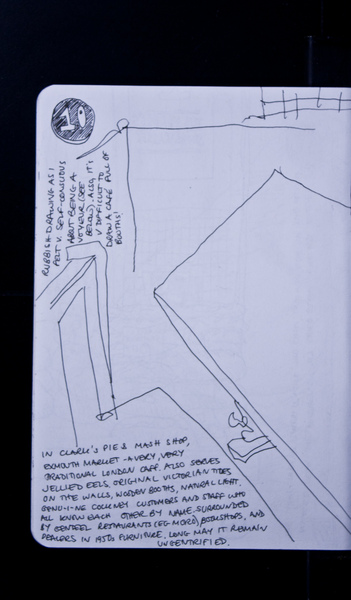 10
RUBBISH DRAWING AS I
FELT V. SELF-CONSCIOUS
ABOUT BEING A
VOYEUR (SEE
BELOW). ALSO, IT'S
V. DIFFICULT TO
DRAW A CAFÉ FULL OF
BOOTHS!
IN CLARK'S PIE & MASH SHOP,
EXMOUTH MARKET - A VERY, VERY
TRADITIONAL LONDON CAFF. ALSO SERVES
JELLIED EELS. ORIGINAL VICTORIAN TILES
ON THE WALLS, WOODEN BOOTHS, NATURAL LIGHT.
GENU-I-NE COCKNEY CUSTOMERS AND STAFF WHO
ALL KNOW EACH OTHER BY NAME. SURROUNDED
BY GENTEEL RESTAURANTS (EG MORO), BOOKSHOPS, AND
DEALERS IN 1950s FURNITURE. LONG MAY IT REMAIN
UNGENTRIFIED.